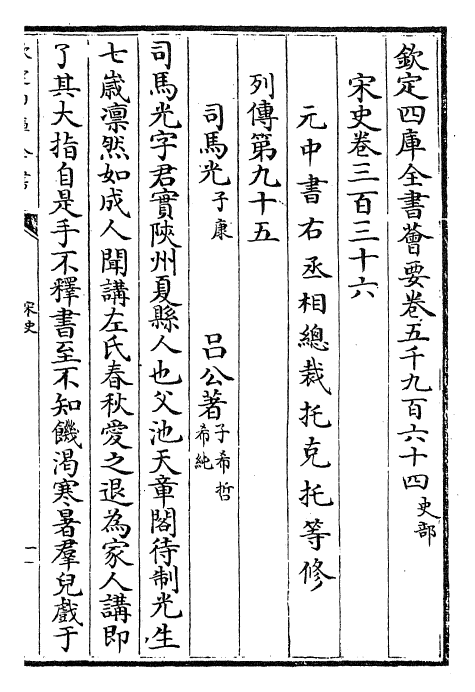 欽定四庫全書薈要卷五千九百六十四史部
宋史卷三百三十六
元中書右丞相總裁托克托等修
列傳第九十五
司馬光子康 呂公著子希哲希純
司馬光字君實陝州夏縣人也父池天章閣待制光生
七歲凛然如成人聞講左氏春秋愛之退為家人講即
了其大指自是手不釋書至不知饑渴寒暑羣兒戲于
宋史
一